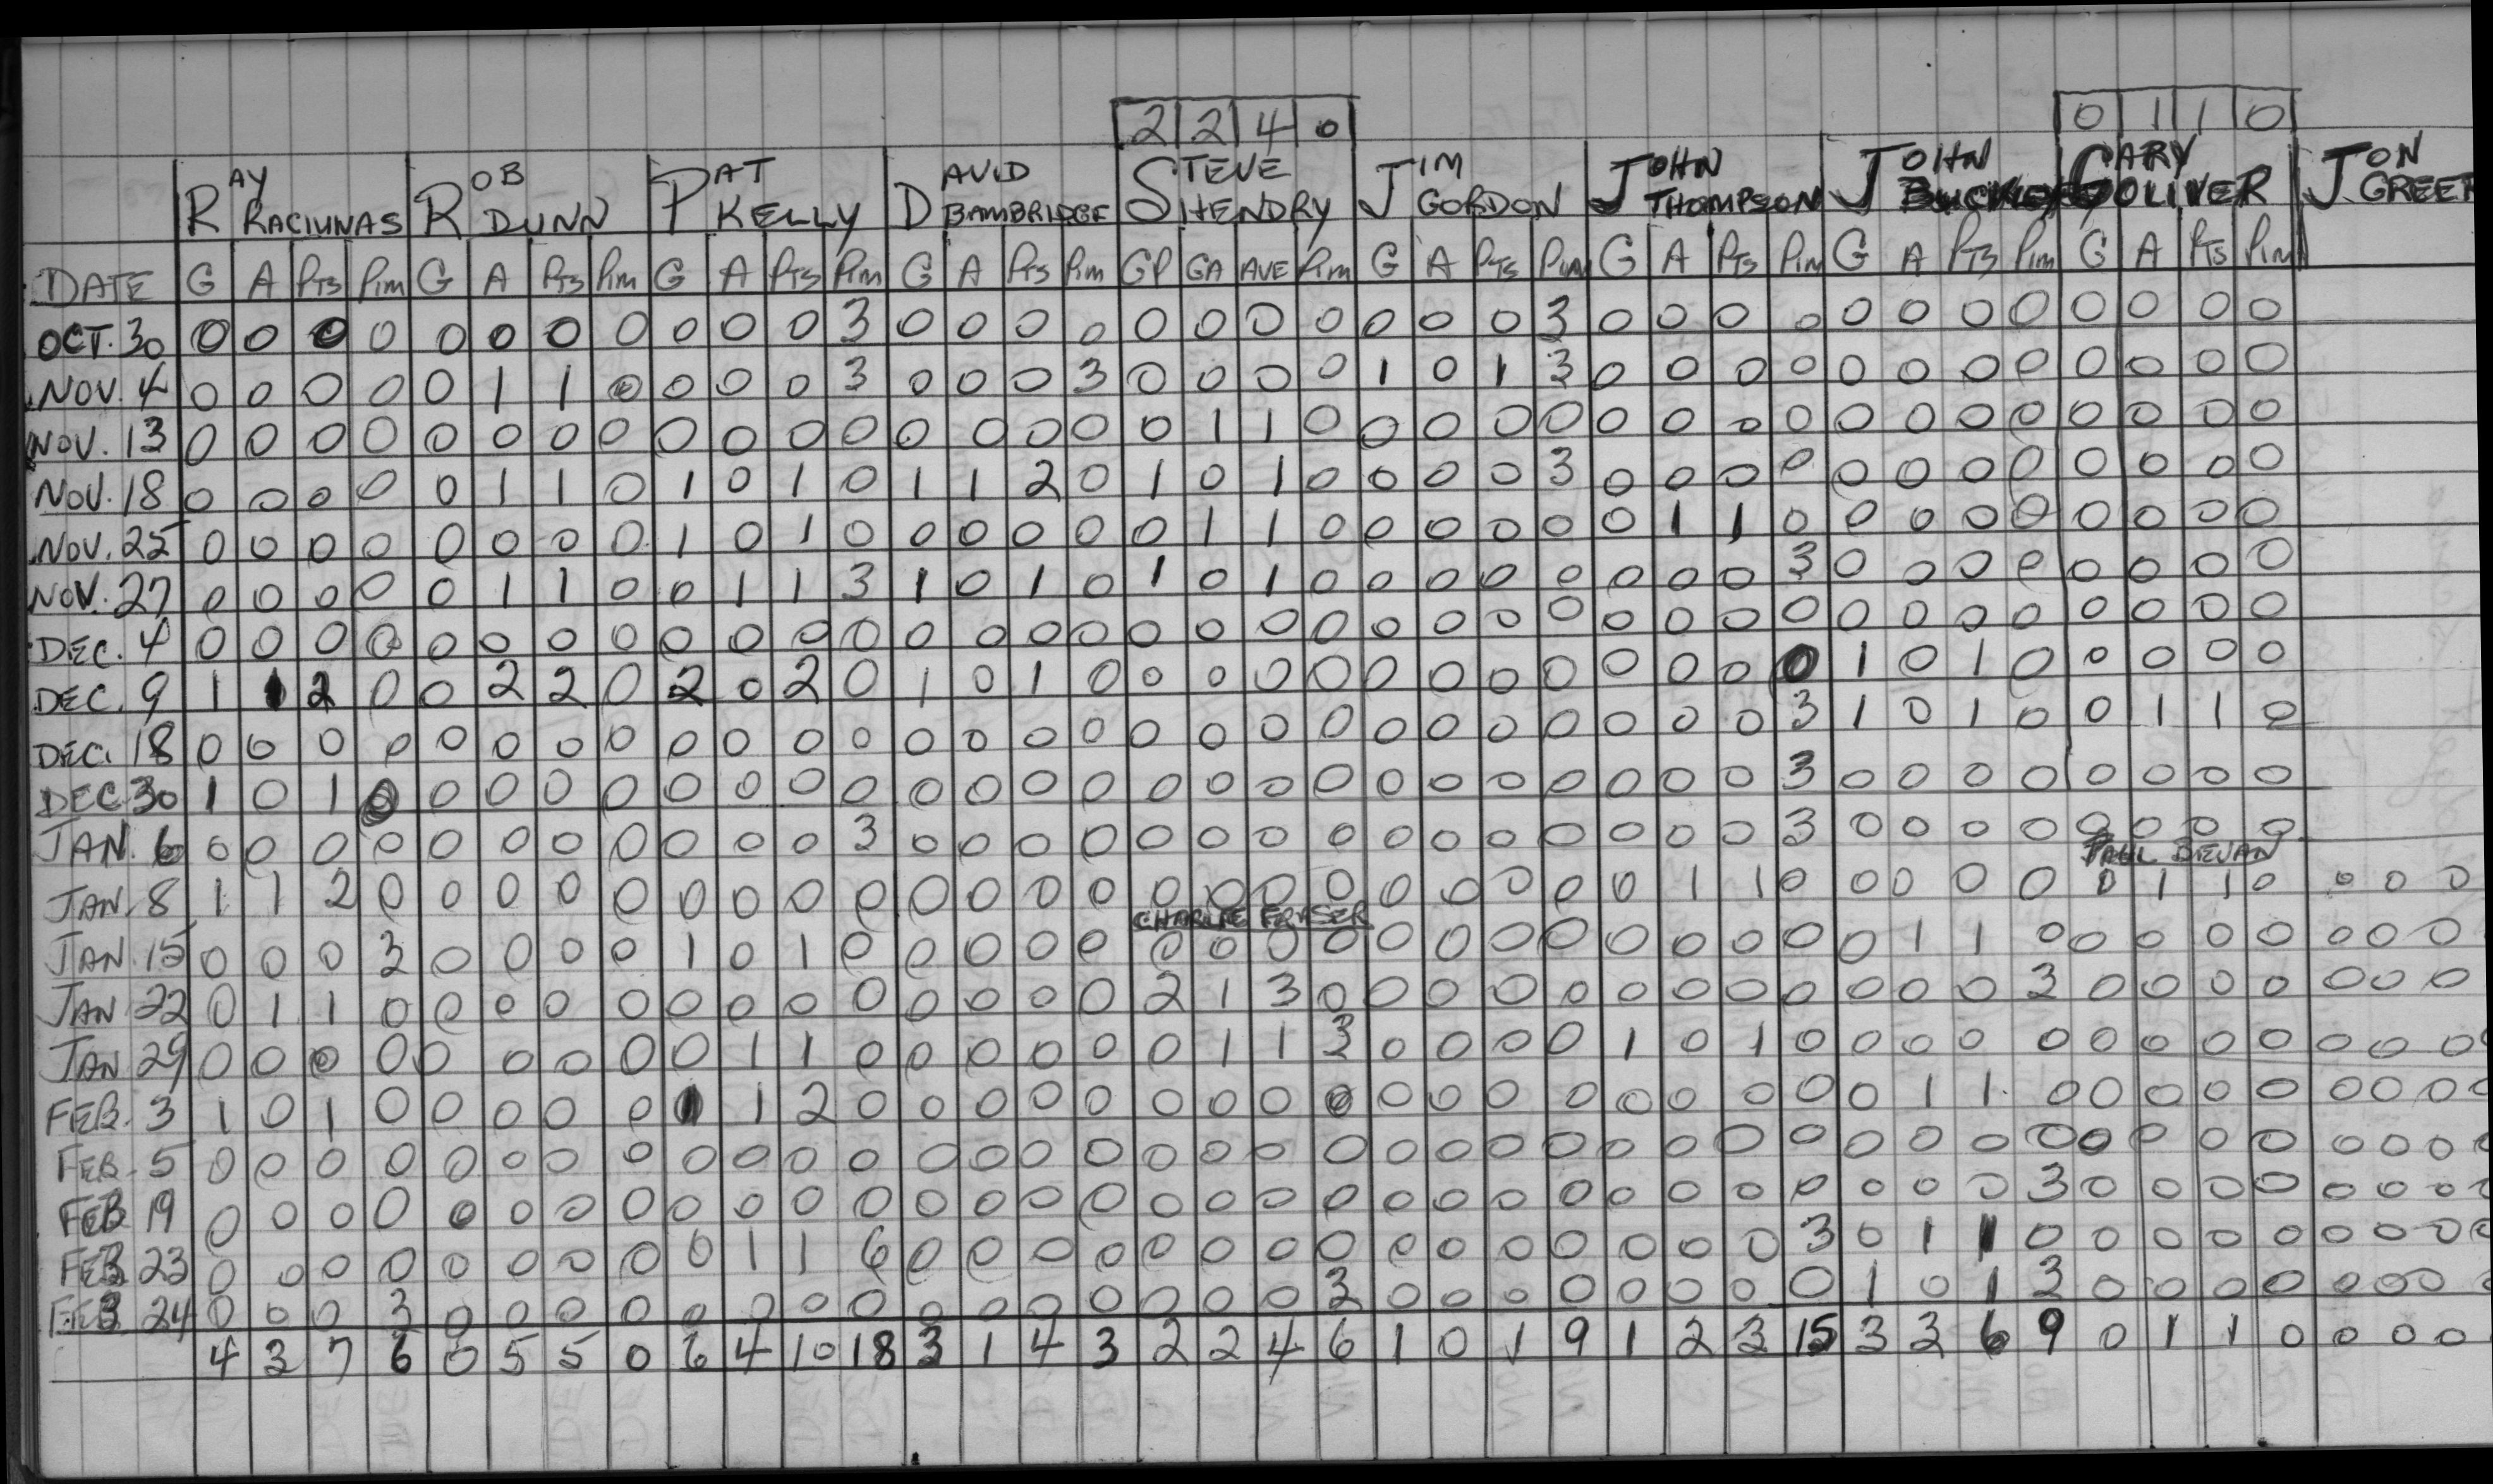 2 2 4 0 0 1 1 0
RAY RACIUNAS ROB DUNN PAT KELLY DAVID BAMBRIDGE STEVE HENDRY JIM GORDON JOHN THOMPSON JOHN BUCKLEY GARY OLIVER JON GREER
DATE G A PTS Pim G A PTS Pim G A PTS Pim G A PTS Pim GP GA AVE Pim G A PTS Pim G A PTS Pim G A PTS Pim G A PTS Pim
OCT. 30 0 0 0 0 0 0 0 0 0 0 0 3 0 0 0 0 0 0 0 0 0 0 0 3 0 0 0 0 0 0 0 0 0 0 0 0
NOV. 4 0 0 0 0 0 1 1 0 0 0 0 3 0 0 0 3 0 0 0 0 1 0 1 3 0 0 0 0 0 0 0 0 0 0 0 0
NOV. 13 0 0 0 0 0 0 0 0 0 0 0 0 0 0 0 0 0 1 1 0 0 0 0 0 0 0 0 0 0 0 0 0 0 0 0 0
NOV. 18 0 0 0 0 0 1 1 0 1 0 1 0 1 1 2 0 1 0 1 0 0 0 0 3 0 0 0 0 0 0 0 0 0 0 0 0
NOV. 25 0 0 0 0 0 0 0 0 1 0 1 0 0 0 0 0 0 1 1 0 0 0 0 0 0 1 1 0 0 0 0 0 0 0 0 0
NOV. 27 0 0 0 0 0 1 1 0 0 1 1 3 1 0 1 0 1 0 1 0 0 0 0 0 0 0 0 3 0 0 0 0 0 0 0 0
DEC. 4 0 0 0 0 0 0 0 0 0 0 0 0 0 0 0 0 0 0 0 0 0 0 0 0 0 0 0 0 0 0 0 0 0 0 0 0
DEC. 9 1 1 2 0 0 2 2 0 2 0 2 0 1 0 1 0 0 0 0 0 0 0 0 0 0 0 0 0 1 0 1 0 0 0 0 0
DEC. 18 0 0 0 0 0 0 0 0 0 0 0 0 0 0 0 0 0 0 0 0 0 0 0 0 0 0 0 3 1 0 1 0 0 1 1 0
DEC 30 1 0 1 0 0 0 0 0 0 0 0 0 0 0 0 0 0 0 0 0 0 0 0 0 0 0 0 3 0 0 0 0 0 0 0 0
JAN. 6 0 0 0 0 0 0 0 0 0 0 0 3 0 0 0 0 0 0 0 0 0 0 0 0 0 0 0 3 0 0 0 0 0 0 0 0
PAUL BEVAN
JAN. 8 1 1 2 0 0 0 0 0 0 0 0 0 0 0 0 0 0 0 0 0 0 0 0 0 0 1 1 0 0 0 0 0 0 1 1 0 0 0 0
CHARLIE FRASER
JAN. 15 0 0 0 3 0 0 0 0 1 0 1 0 0 0 0 0 0 0 0 0 0 0 0 0 0 0 0 0 0 1 1 0 0 0 0 0 0 0 0
JAN 22 0 1 1 0 0 0 0 0 0 0 0 0 0 0 0 0 2 1 3 0 0 0 0 0 0 0 0 0 0 0 0 3 0 0 0 0 0 0 0
JAN 29 0 0 0 0 0 0 0 0 0 1 1 0 0 0 0 0 0 1 1 3 0 0 0 0 1 0 1 0 0 0 0 0 0 0 0 0 0 0 0 0
FEB. 3 1 0 1 0 0 0 0 0 1 1 2 0 0 0 0 0 0 0 0 0 0 0 0 0 0 0 0 0 0 1 1 0 0 0 0 0 0 0 0 0
FEB. 5 0 0 0 0 0 0 0 0 0 0 0 0 0 0 0 0 0 0 0 0 0 0 0 0 0 0 0 0 0 0 0 0 0 0 0 0 0 0 0 0
FEB 19 0 0 0 0 0 0 0 0 0 0 0 0 0 0 0 0 0 0 0 0 0 0 0 0 0 0 0 0 0 0 0 3 0 0 0 0 0 0 0 0
FEB 23 0 0 0 0 0 0 0 0 0 1 1 6 0 0 0 0 0 0 0 0 0 0 0 0 0 0 0 3 0 1 1 0 0 0 0 0 0 0 0 0
FEB 24 0 0 0 3 0 0 0 0 0 0 0 0 0 0 0 0 0 0 0 3 0 0 0 0 0 0 0 0 1 0 1 3 0 0 0 0 0 0 0 0
4 3 7 6 0 5 5 0 6 4 10 18 3 1 4 3 2 2 4 6 1 0 1 9 1 2 3 15 3 3 6 9 0 1 1 0 0 0 0